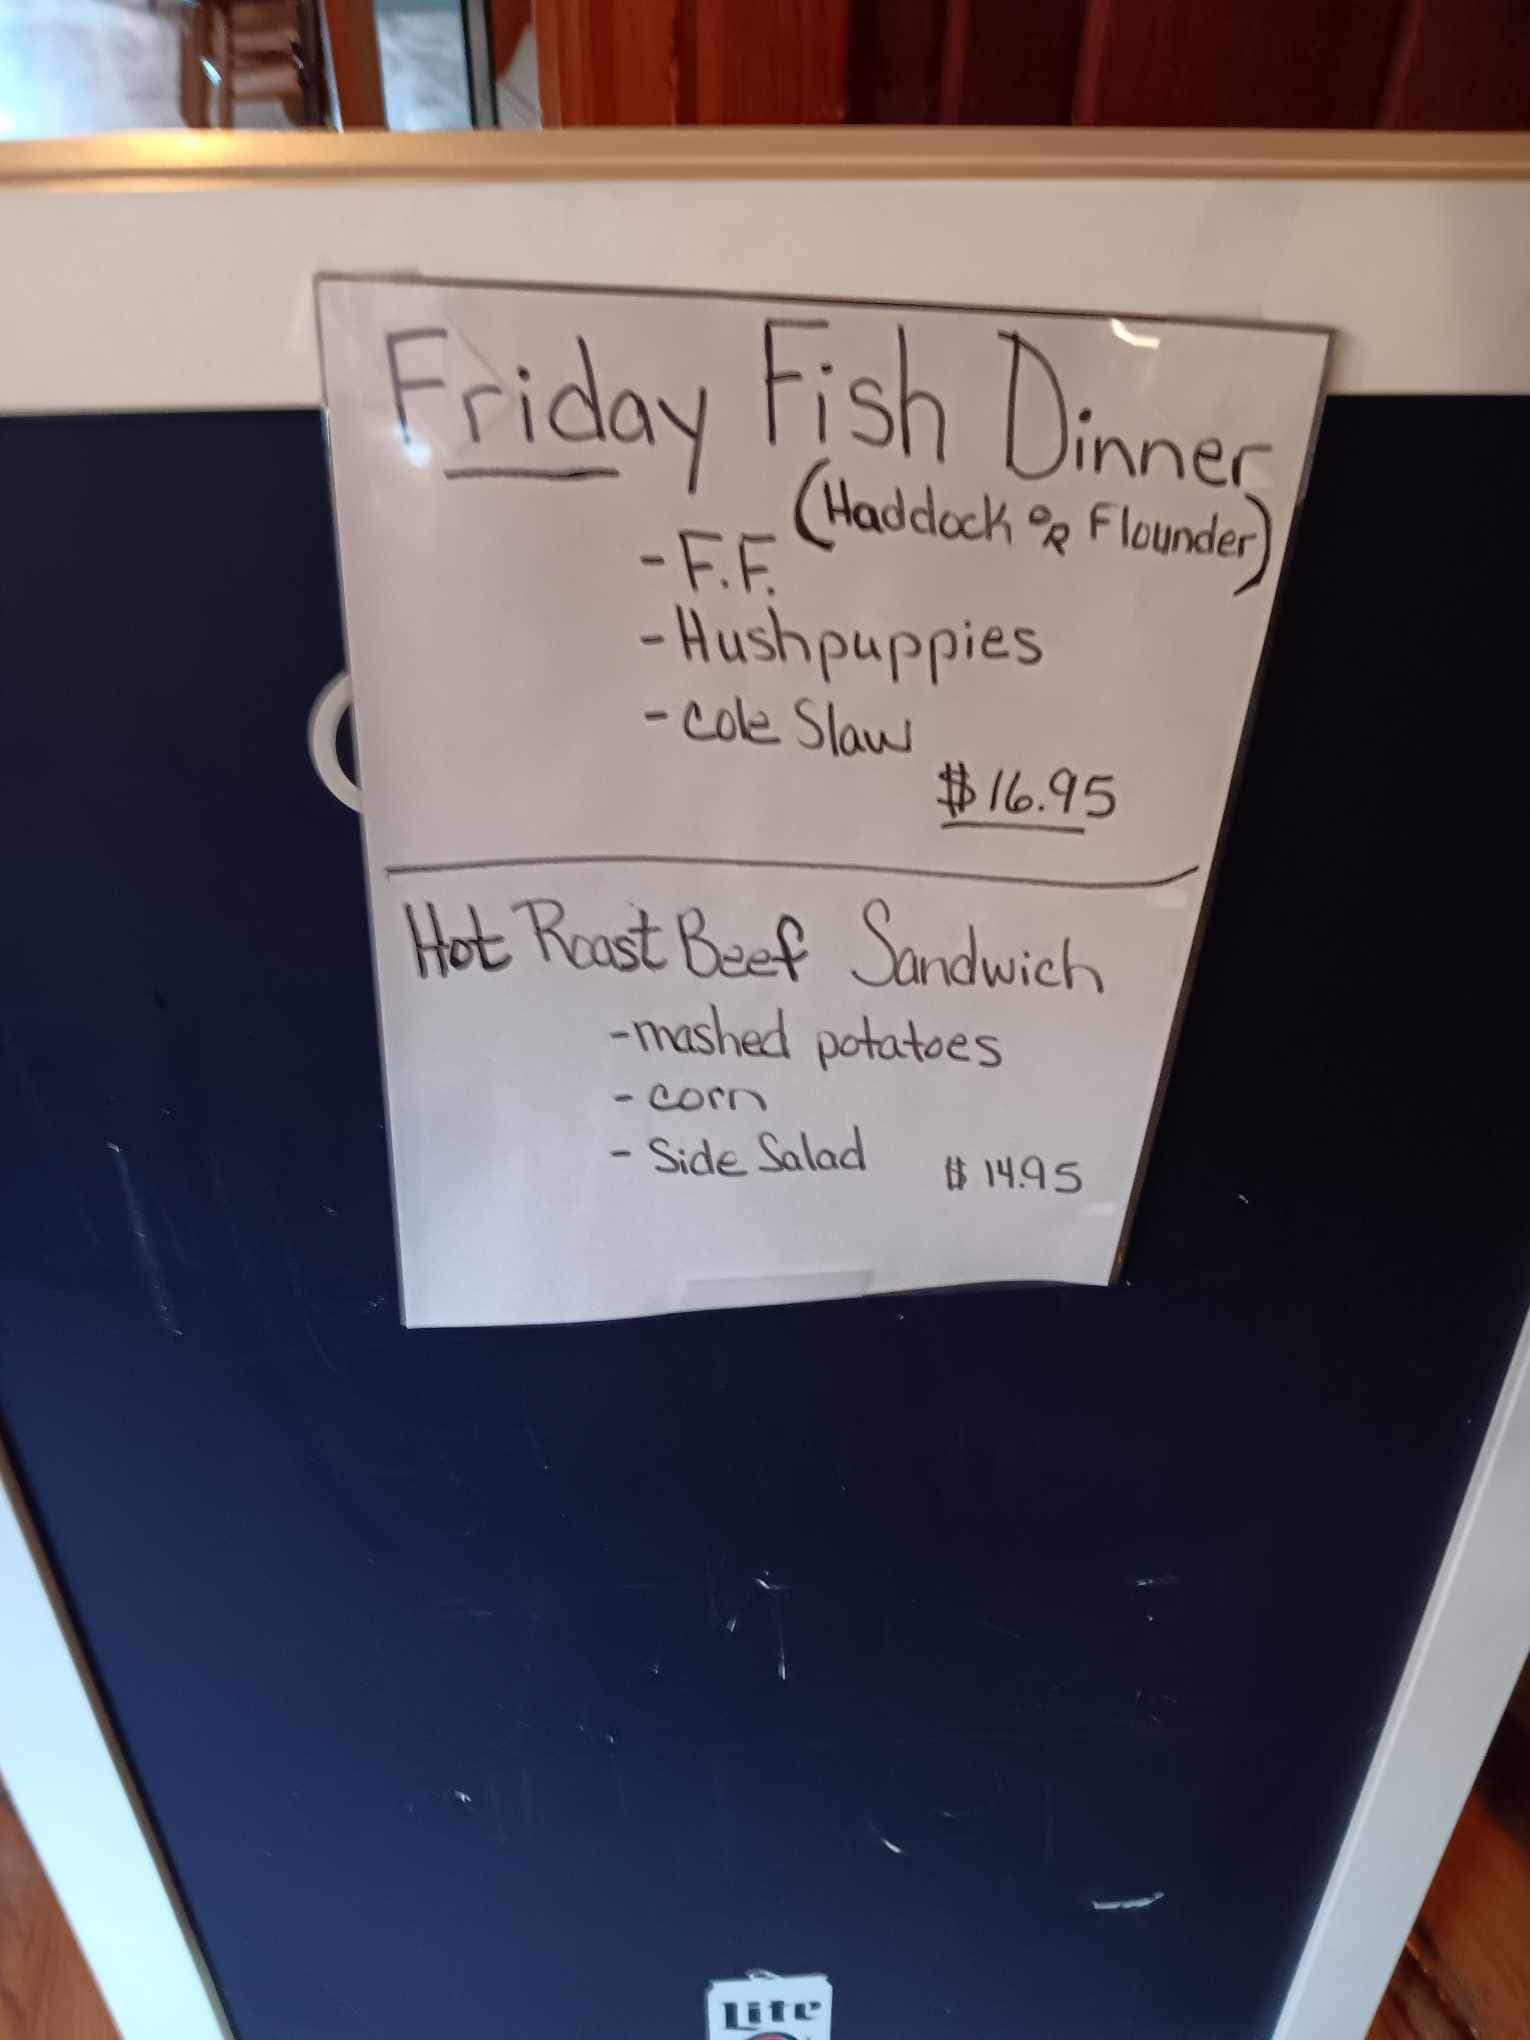 Friday Fish Dinner
(Haddock OR Flounder)
- F.F.
- Hushpuppies
- Cole Slaw
$16.95
Hot Roast Beef Sandwich
- mashed potatoes
- corn
- Side Salad $14.95
Lite